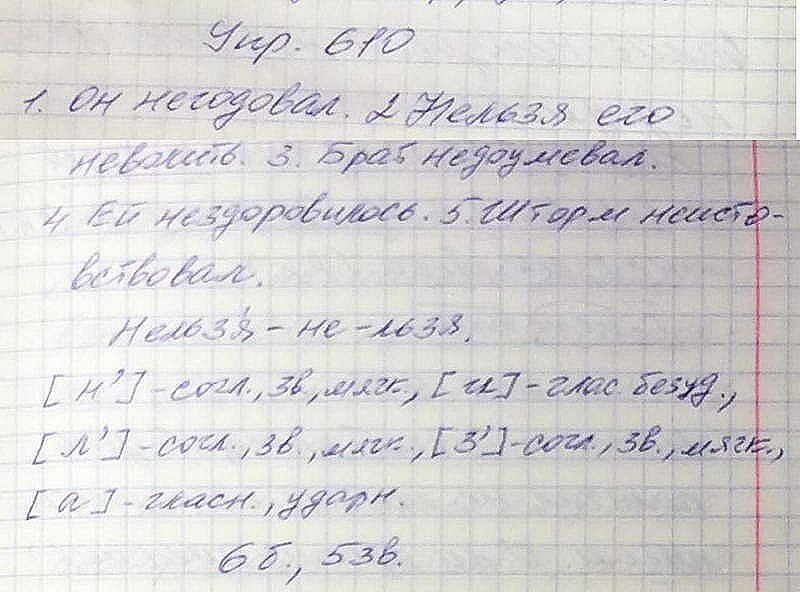 Упр. 610
1. Он негодовал. 2 Нельзя его
неволить. 3. Брат недоумевал.
4 Ей нездоровилось. 5. Шторм неисто-
вствовал.
Нельзя́ - не - льзя.
[н'] - согл., зв., мягк., [и] - глас. безуд.,
[л'] - согл., зв., мягк., [з'] - согл., зв., мягк.,
[а] - гласн., ударн.
6 б., 5 зв.